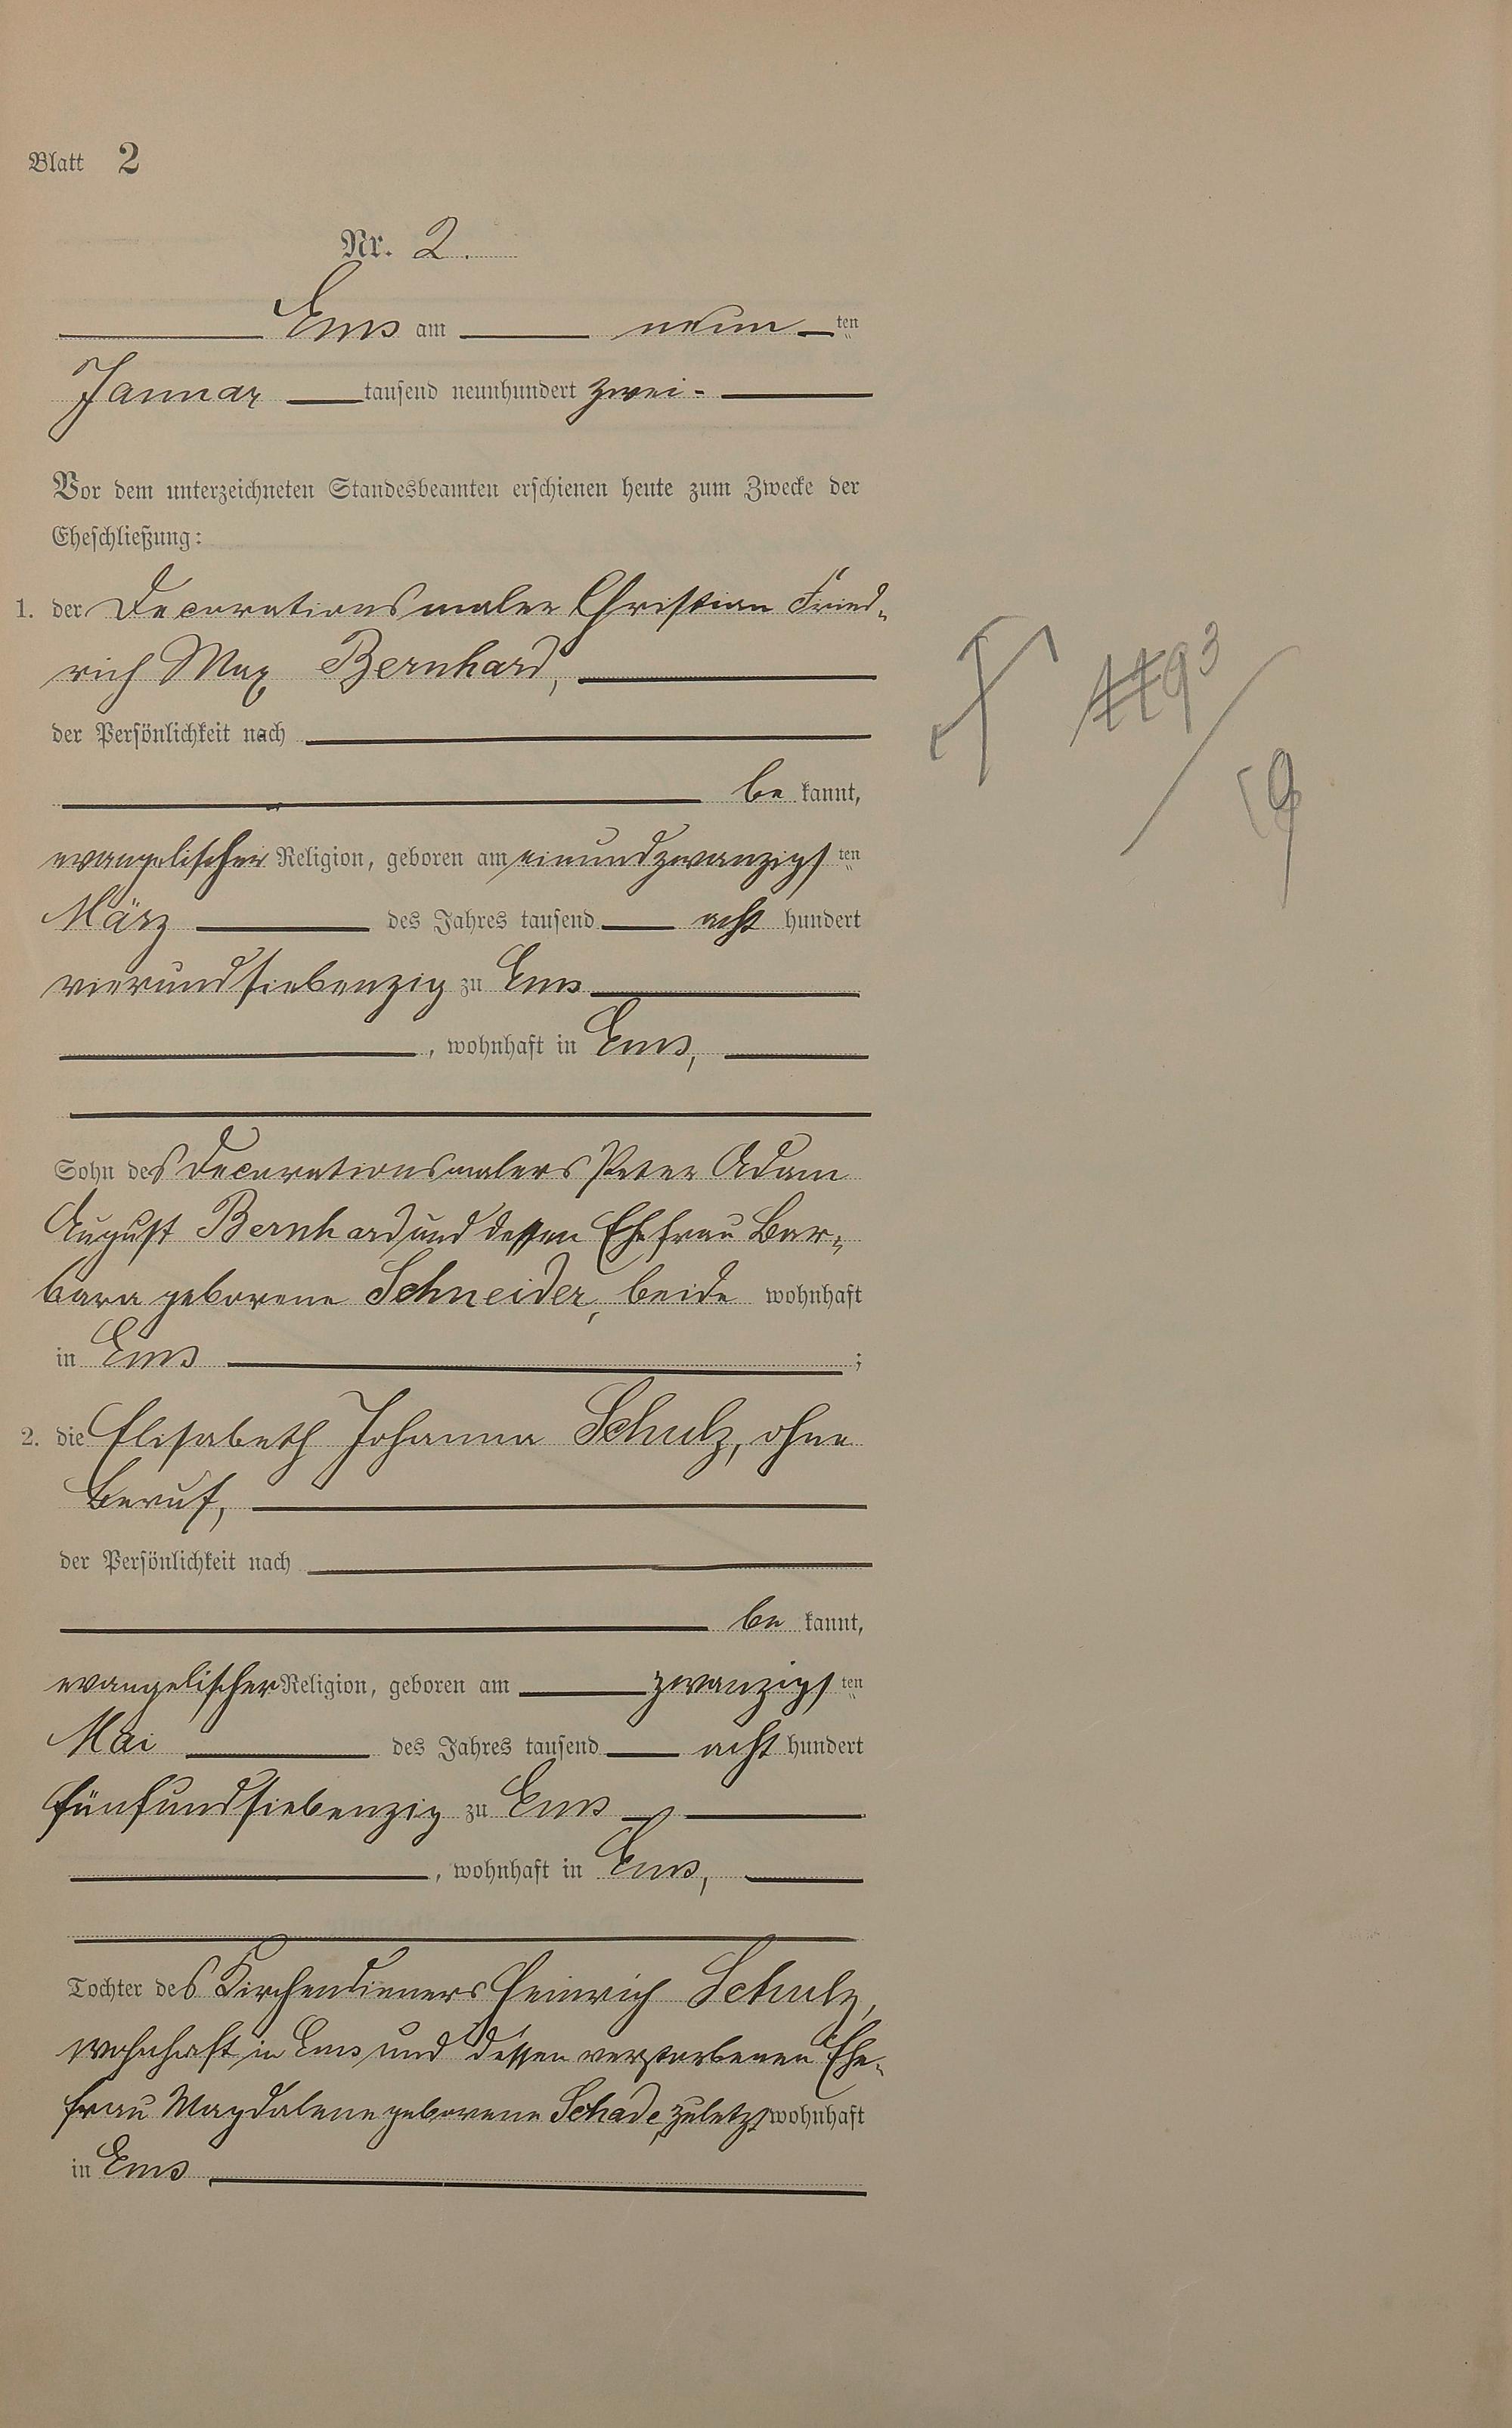 Blatt 2
Nr. 2.
Ems am neun ten
Januar tausend neunhundert zwei -
Vor dem unterzeichneten Standesbeamten erschienen heute zum Zwecke der
Eheschließung:
1. der Decorationsmaler Christian Fried-
rich Max Bernhard,
der Persönlichkeit nach
be kannt,
evangelischer Religion, geboren am einundzwanzigs ten
März des Jahres tausend acht hundert
vierundsiebenzig zu Ems
, wohnhaft in Ems,
Sohn des Decorationsmalers Peter Adam
August Bernhard und dessen Ehefrau Bar-
bara geborene Schneider, beide wohnhaft
in Ems ;
2. die Elisabeth Johanna Schulz, ohne
Beruf,
der Persönlichkeit nach
be kannt,
evangelischer Religion, geboren am zwanzigs ten
Mai des Jahres tausend acht hundert
fünfundsiebenzig zu Ems
, wohnhaft in Ems,
Tochter des Kirchendieners Heinrich Schulz,
wohnhaft in Ems und dessen verstorbenen Ehe-
frau Magdalene geborene Schade, zuletzt wohnhaft
in Ems